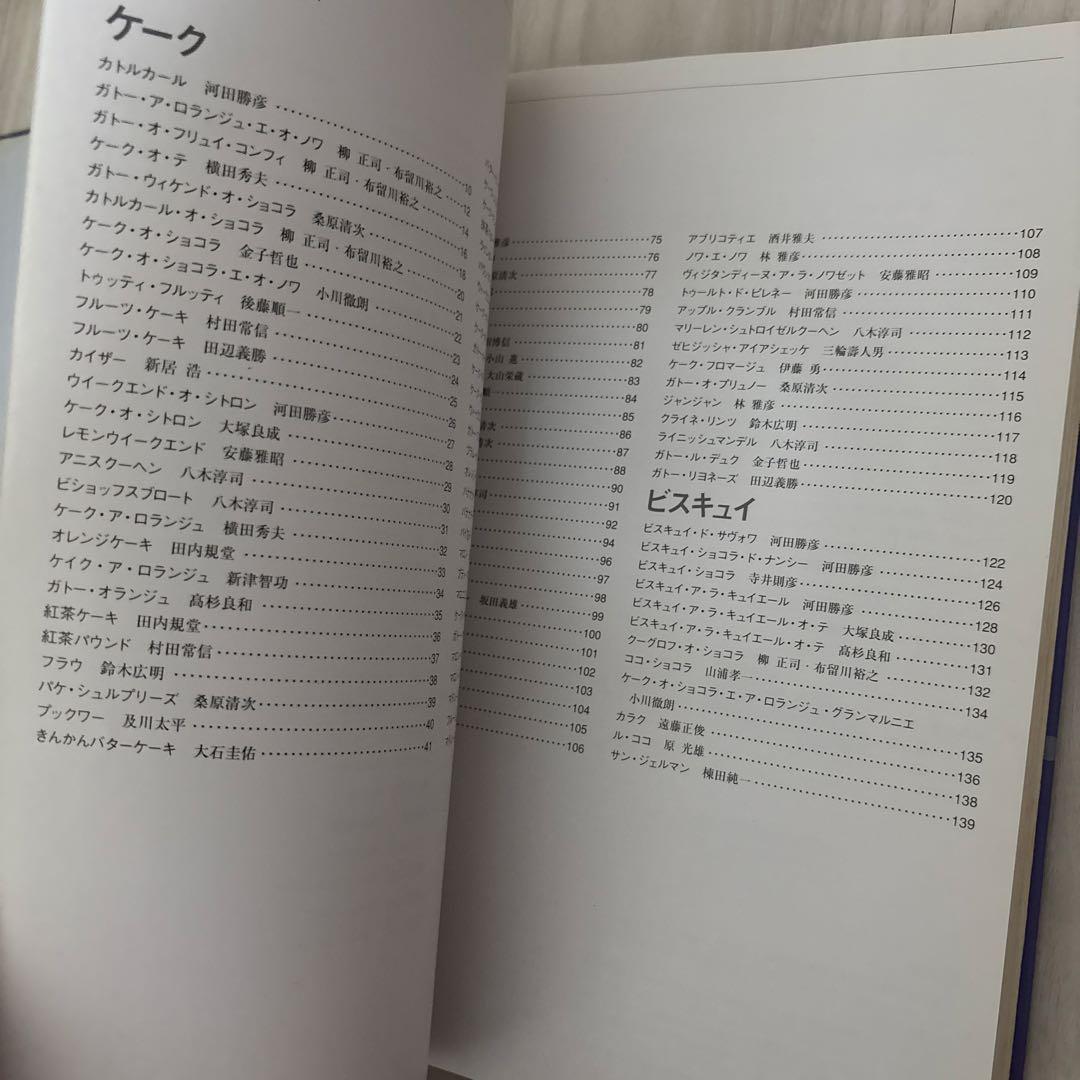 ケーク
カトルカール 河田勝彦 10
ガトー・ア・ロランジュ・エ・オ・ノワ 柳 正司・布留川裕之 12
ガトー・オ・フリュイ・コンフィ 柳 正司・布留川裕之 14
ケーク・オ・テ 横田秀夫 16
ガトー・ウィケンド・オ・ショコラ 桑原清次 18
カトルカール・オ・ショコラ 柳 正司・布留川裕之 20
ケーク・オ・ショコラ 金子哲也 21
ケーク・オ・ショコラ・エ・オ・ノワ 小川徹朗 22
トゥッティ・フルッティ 後藤順一 23
フルーツ・ケーキ 村田常信 24
フルーツ・ケーキ 田辺義勝 25
カイザー 新居 浩 26
ウイークエンド・オ・シトロン 河田勝彦 27
ケーク・オ・シトロン 大塚良成 28
レモンウイークエンド 安藤雅昭 29
アニスクーヘン 八木淳司 30
ビショッフスブロート 八木淳司 31
ケーク・ア・ロランジュ 横田秀夫 32
オレンジケーキ 田内規堂 33
ケイク・ア・ロランジュ 新津智功 34
ガトー・オランジュ 髙杉良和 35
紅茶ケーキ 田内規堂 36
紅茶パウンド 村田常信 37
フラウ 鈴木広明 38
パケ・シュルプリーズ 桑原清次 39
ブックワー 及川太平 40
きんかんバターケーキ 大石圭佑 41
彦 75
76
原清次 77
78
79
80
博信 81
小山 進 82
大山栄蔵 83
84
85
清次 86
清次 87
88
90
司 91
92
94
96
97
98
坂田義雄 99
100
101
102
103
104
105
106
アブリコティエ 酒井雅夫 107
ノワ・エ・ノワ 林 雅彦 108
ヴィジタンディーヌ・ア・ラ・ノワゼット 安藤雅昭 109
トゥールト・ド・ピレネー 河田勝彦 110
アップル・クランブル 村田常信 111
マリーレン・シュトロイゼルクーヘン 八木淳司 112
ゼヒジッシャ・アイアシェッケ 三輪壽人男 113
ケーク・フロマージュ 伊藤 勇 114
ガトー・オ・ブリュノー 桑原清次 115
ジャンジャン 林 雅彦 116
クライネ・リンツ 鈴木広明 117
ライニッシュマンデル 八木淳司 118
ガトー・ル・デュク 金子哲也 119
ガトー・リヨネーズ 田辺義勝 120
ビスキュイ
ビスキュイ・ド・サヴォワ 河田勝彦 122
ビスキュイ・ショコラ・ド・ナンシー 河田勝彦 124
ビスキュイ・ショコラ 寺井則彦 126
ビスキュイ・ア・ラ・キュイエール 河田勝彦 128
ビスキュイ・ア・ラ・キュイエール・オ・テ 大塚良成 130
ビスキュイ・ア・ラ・キュイエール・オ・テ 髙杉良和 131
クーグロフ・オ・ショコラ 柳 正司・布留川裕之 132
ココ・ショコラ 山浦孝一 134
ケーク・オ・ショコラ・エ・ア・ロランジュ・グランマルニエ
小川徹朗 135
カラク 遠藤正俊 136
ル・ココ 原 光雄 138
サン・ジェルマン 棟田純一 139